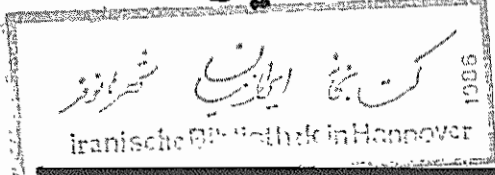 کتابخانه ایرانیان شهر هانوفر
iranische Bibliothek in Hannover